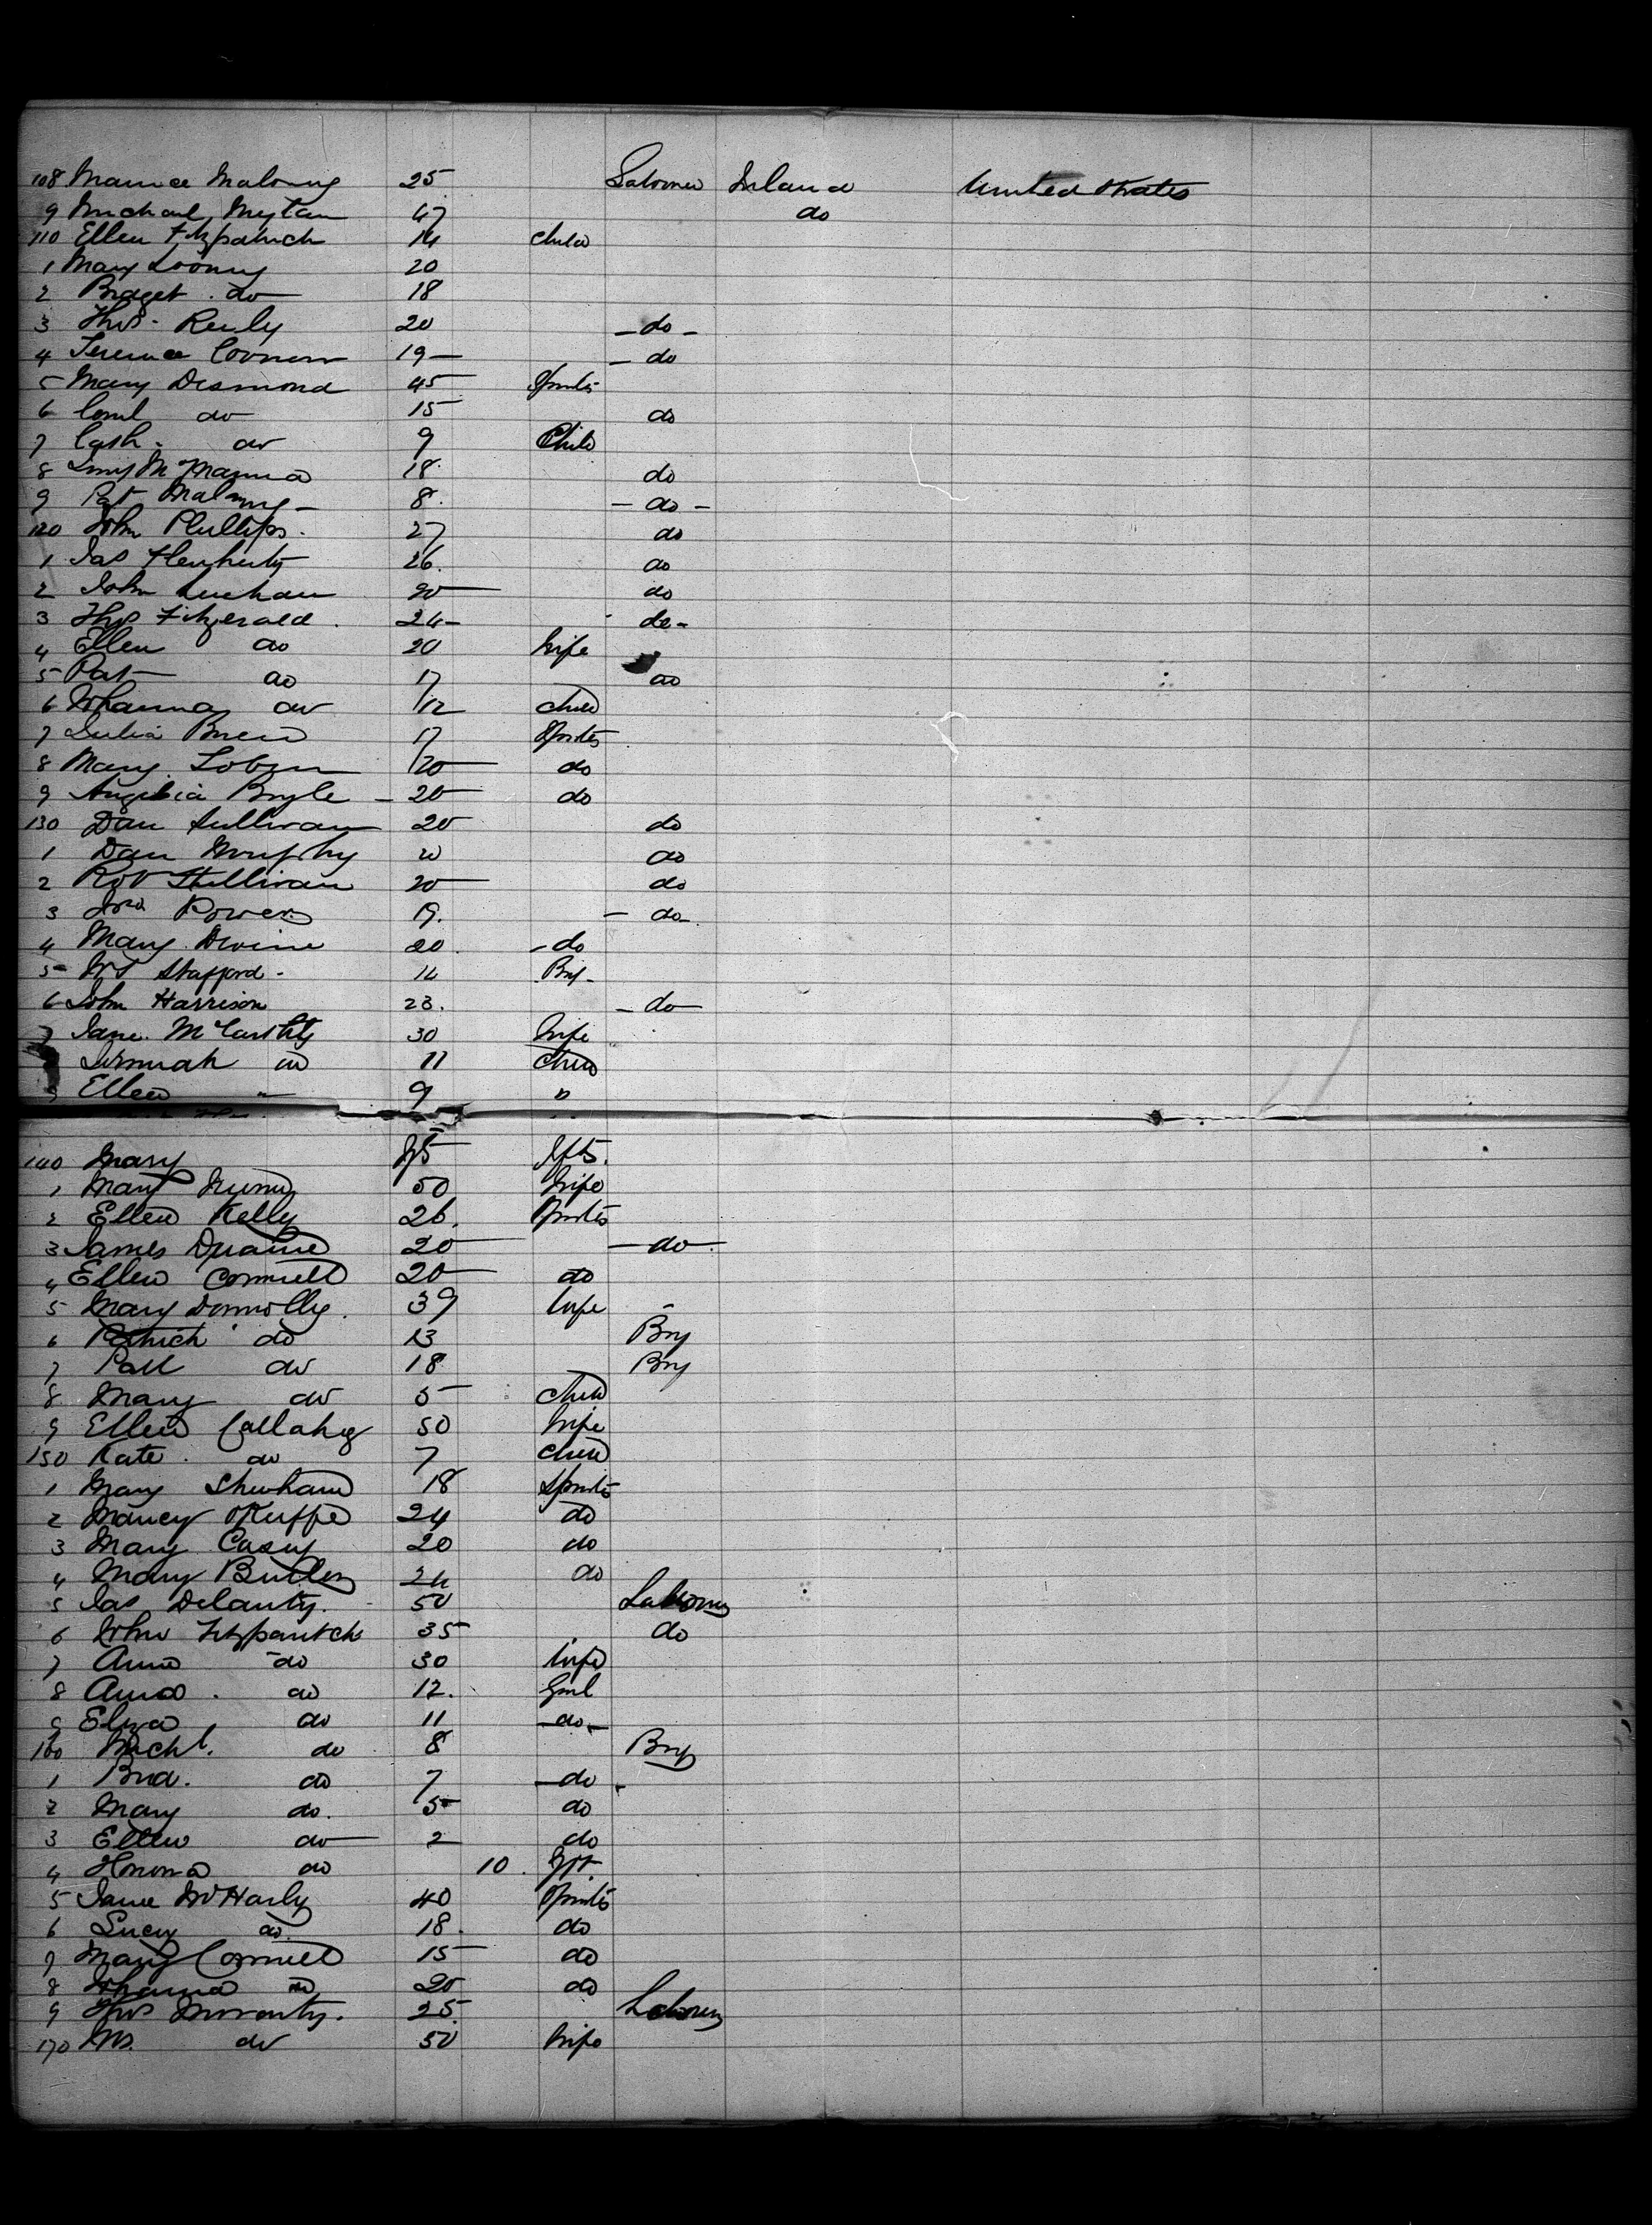 108 Maurice Malony 25 Laborer Ireland United States
9 Michael 47 do
110 Ellen Fitzpatrick 14 child
1 Mary Loony 20
2 Bridget do 18
3 Thos. Reily 20 - do -
4 Terence Connor 19 - do
5 Mary Desmond 45 Spinster
6 Cornl do 15 do
7 Cath. do 9 Child
8 McNamara 18 do
9 Pat Malony 8 - do -
120 John Phillips. 27 do
1 Jas Flenherty 26. do
2 John 20 do
3 Thos Fitzgerald. 24 do -
4 Ellen do 20 Wife
5 Pat do 17 do
6 Johanna do /12 child
7 Julia 17 Spinster
8 Mary 20 do
9 20 do
130 Dan Sullivan 20 do
1 Dan Murphy 20 do
2 Robt Sullivan 20 do
3 Jno Power 19. - do -
4 Mary Devine 20. - do
5 Wm Stafford - 14 Boy -
6 John Harrison 23. - do
7 Jane McCarthy 30 Wife
Jeremiah do 11 Child
9 Ellen " 9 "
140 Mary Sptr.
1 Mary 50 Wife
2 Ellen Kelly 26. Spinster
3 James 20 - do -
4 Ellen Connell 20 do
5 Mary Donnolly. 39 Wife
6 Patrick do 13 Boy
7 do 18 Boy
8 Mary do 5 child
9 Ellen Callahy 50 Wife
150 Kate. do 7 child
1 Mary 18 Spinster
2 Nancy OKeiffe 24 do
3 Mary Casey 20 do
4 Mary Butler 24 do
5 Jas Delanty. 50 Laborer
6 John Fitzpatrick 35 do
7 Anna do 30 Wife
8 Anna. do 12. Girl
9 Eliza do 11 - do -
160 Michl. do 8 Boy
1 Brid. do 7 - do -
2 Mary do. 5 do
3 Ellen do 2 do
4 Honora do 10.
5 Jane 40 Spinster
6 Lucy do 18. do
7 Mary Connell 15 do
8 Johanna do 20 do
9 Thos Moriarty. 25. Laborer
170 Mrs. do 50 Wife